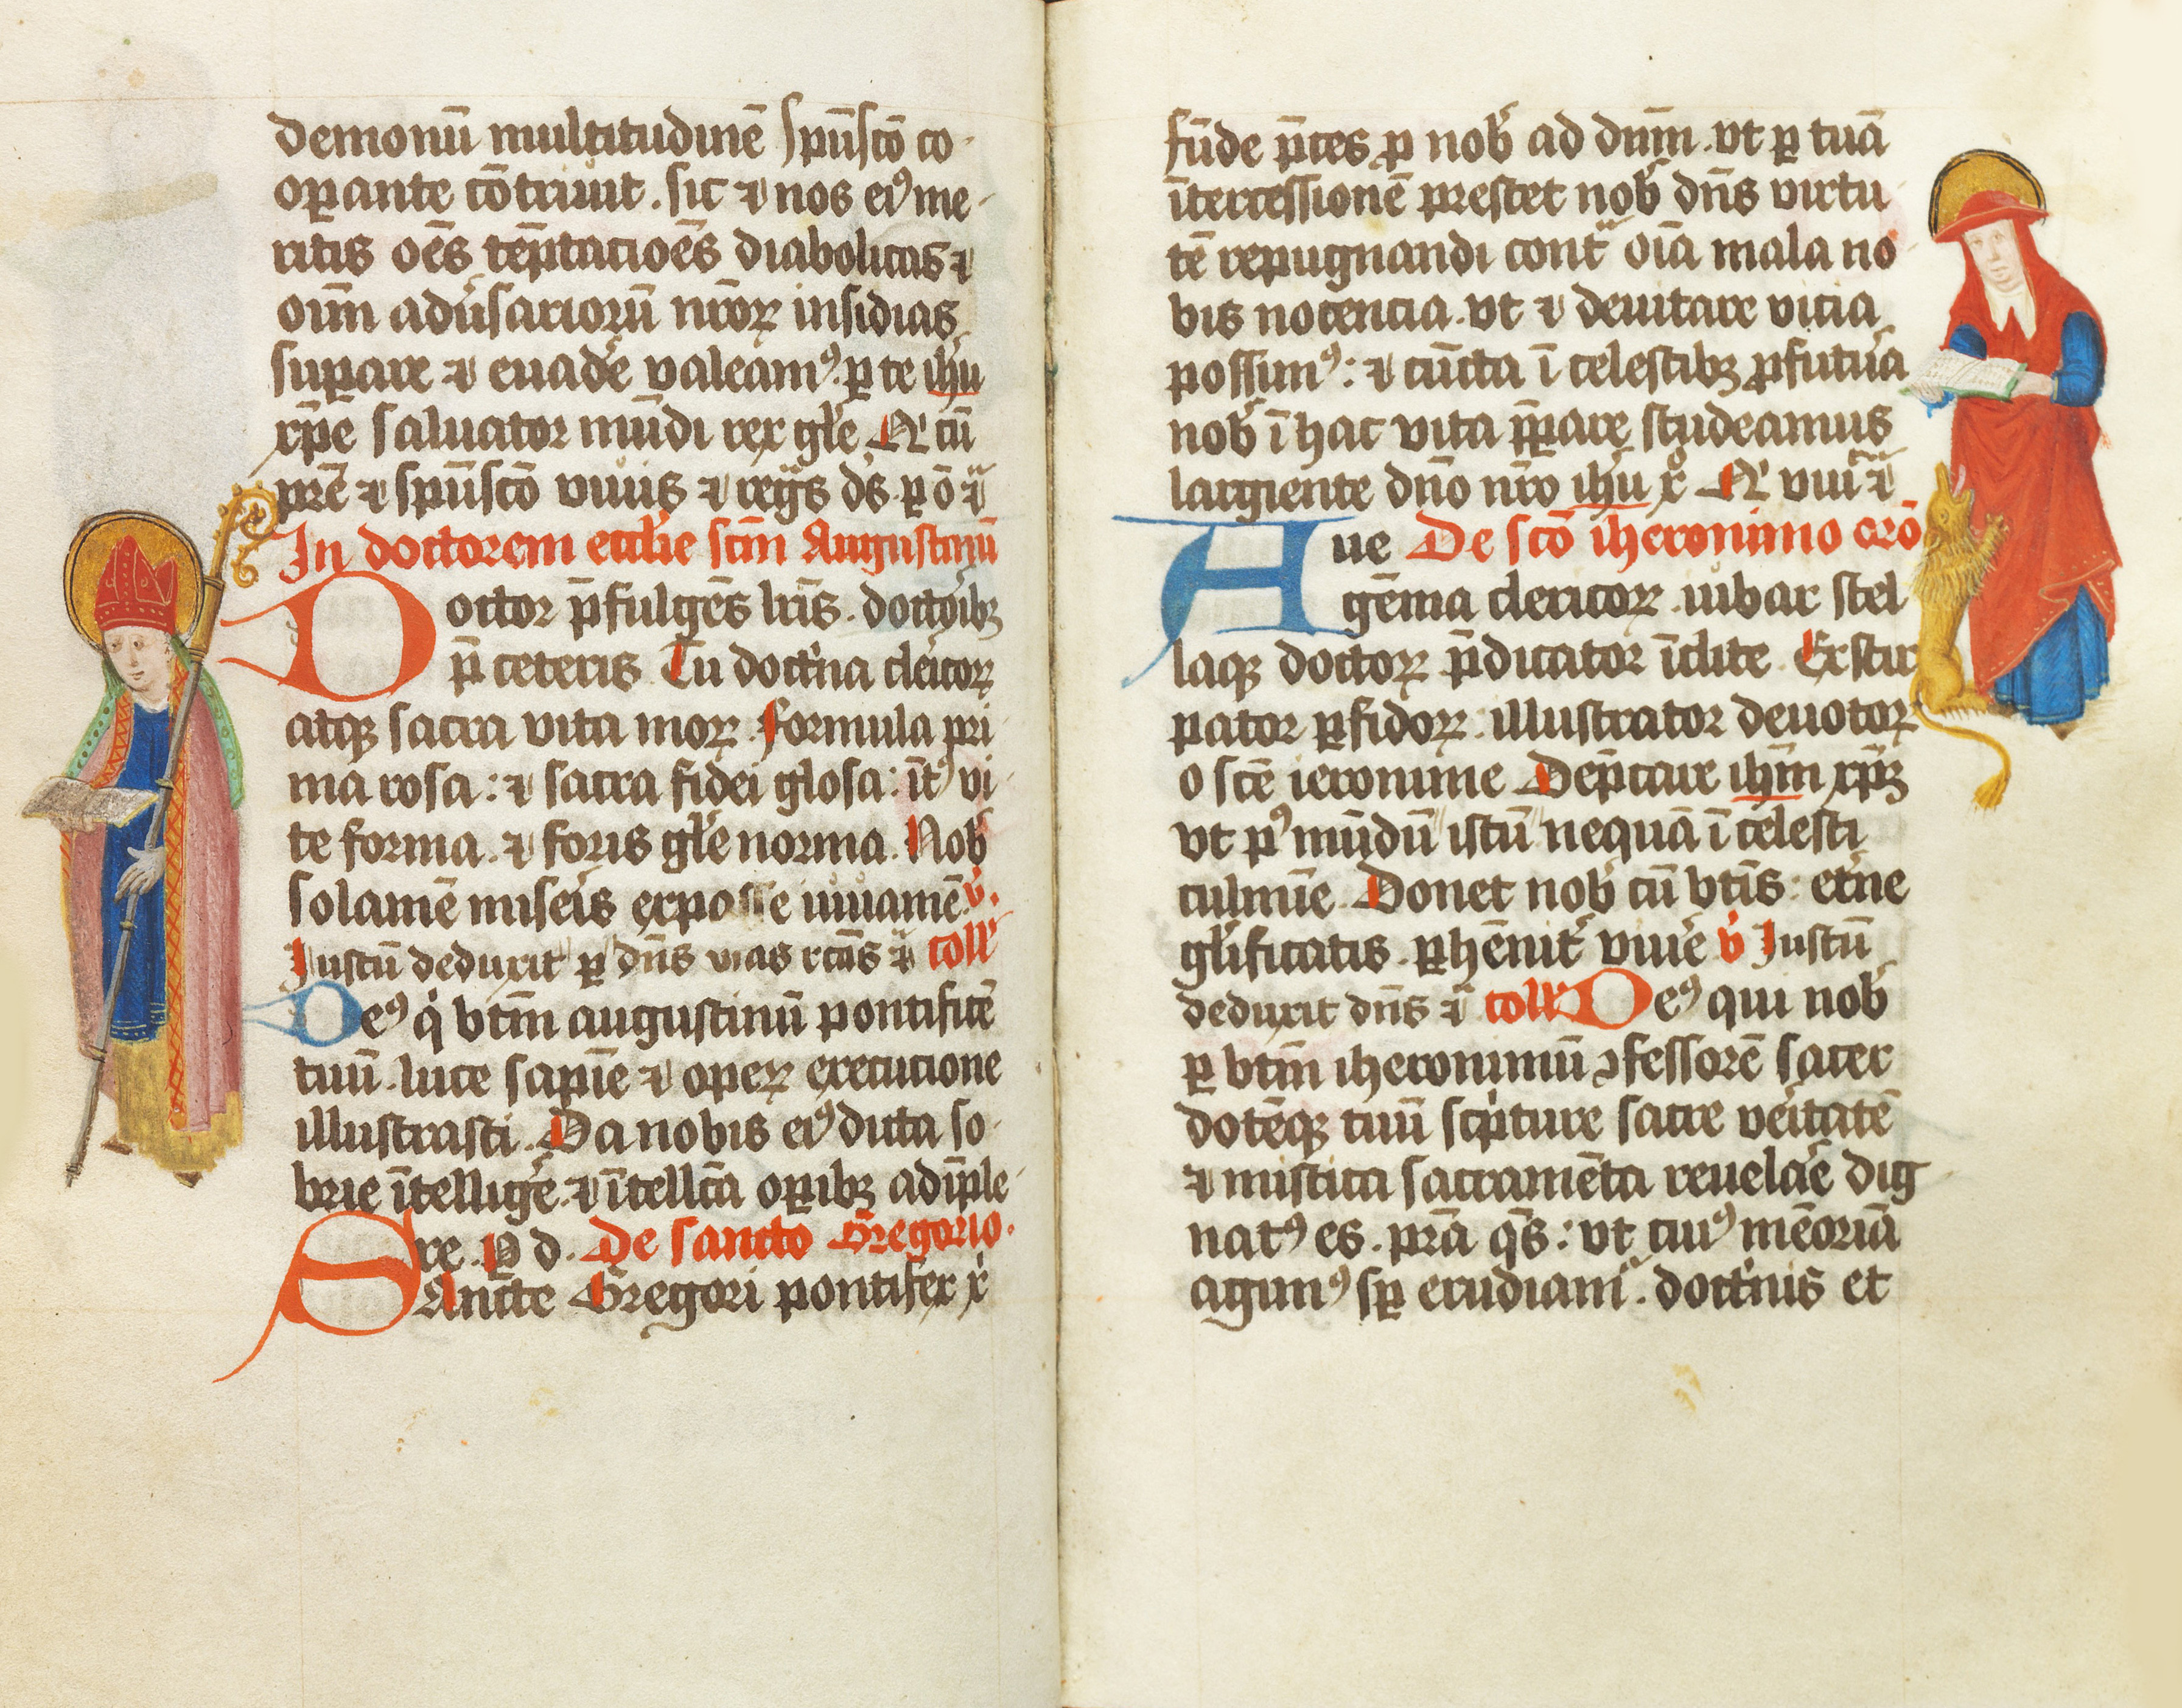 demonū multitudinē spūscō co
oꝑante cōtriuit. sic ⁊ nos eiꝰ me
ritis oēs tēptacioēs diabolicas ⁊
oīm adūsarioꝝū nr̄oꝝ insidias
suꝑare ⁊ euadẽ valeamꝰ. ꝑ te ihū
xp̄e saluator mūdi rex gl̄e N̾ cū
pr̄e ⁊ spūscō viuis ⁊ regis ds̄ ꝑ ō ⁊
In doctorem eccl̄ie sc̄m Augustinū
Doctor p̄fulgēs lrīs. doctoribꝫ
p̄ ceteris Tu doct'na cleicoꝝ
atqꝫ sacra vita moꝝ formula pri
ma rosa: ⁊ sacra fidei glosa: īt' vi
te forma. ⁊ foris gl̄e norma. Nob'
solamē miseis iuuamē. v̾.
Iustū deduxit ꝑ dn̄s vias rc̄as ⁊ coll'
Deꝰ q' btm̄ augustinū pontificē
tuū. luce sapīe ⁊ opeꝝ execucione
illustrasti. Da nobis eiꝰ dicta so
brie ītellig'e. ⁊ ītellc̄a oꝑibꝫ adīple
re. P d. De sancto Gregorio.
SAncte Gregori pontifex x'
fūde p̄ces ꝓ nob' ad dn̄m. vt ꝑ tuā
ītercessionē prestet nob' dn̄s virtu
tē repugnandi cont̃ oīa mala no
bis nocencia. vt ⁊ deuitare vicia
possimꝰ: ⁊ cūcta ī celestibꝫ ꝓfutu'a
nob' ī hac vita p̄ꝑare studeamus
largiente dn̄o nr̄o ihū x' N̾ viui ⁊
Aue De scō iheronimo orō
gēma clericoꝝ. iubar stel
laqꝫ doctoꝝ p̄dicator īclite. Extir
pator ꝑfidoꝝ. illustrator deuotoꝝ
o scē ieronime Dep̄care ihm̄ xp̄ꝫ
vt pꝰ mūdū istū nequā ī celesti
culmīe. Donet nob' cū btīs: et'ne
gl'ificatis. ꝑhēnit' viu'e v̾ Iustū
deduxit dn̄s ⁊ coll' Deꝰ qui nob'
ꝑ btm̄ iheronimū ꝯfessorē sacer
dotēqꝫ tuū sc'pture sacre veritatē
⁊ mistica sacramēta reuelar'e dig
natꝰ es. pr̄a qs̄: vt cuiꝰ mēoriā
agimꝰ sꝑ erudiam'. doct'nis et